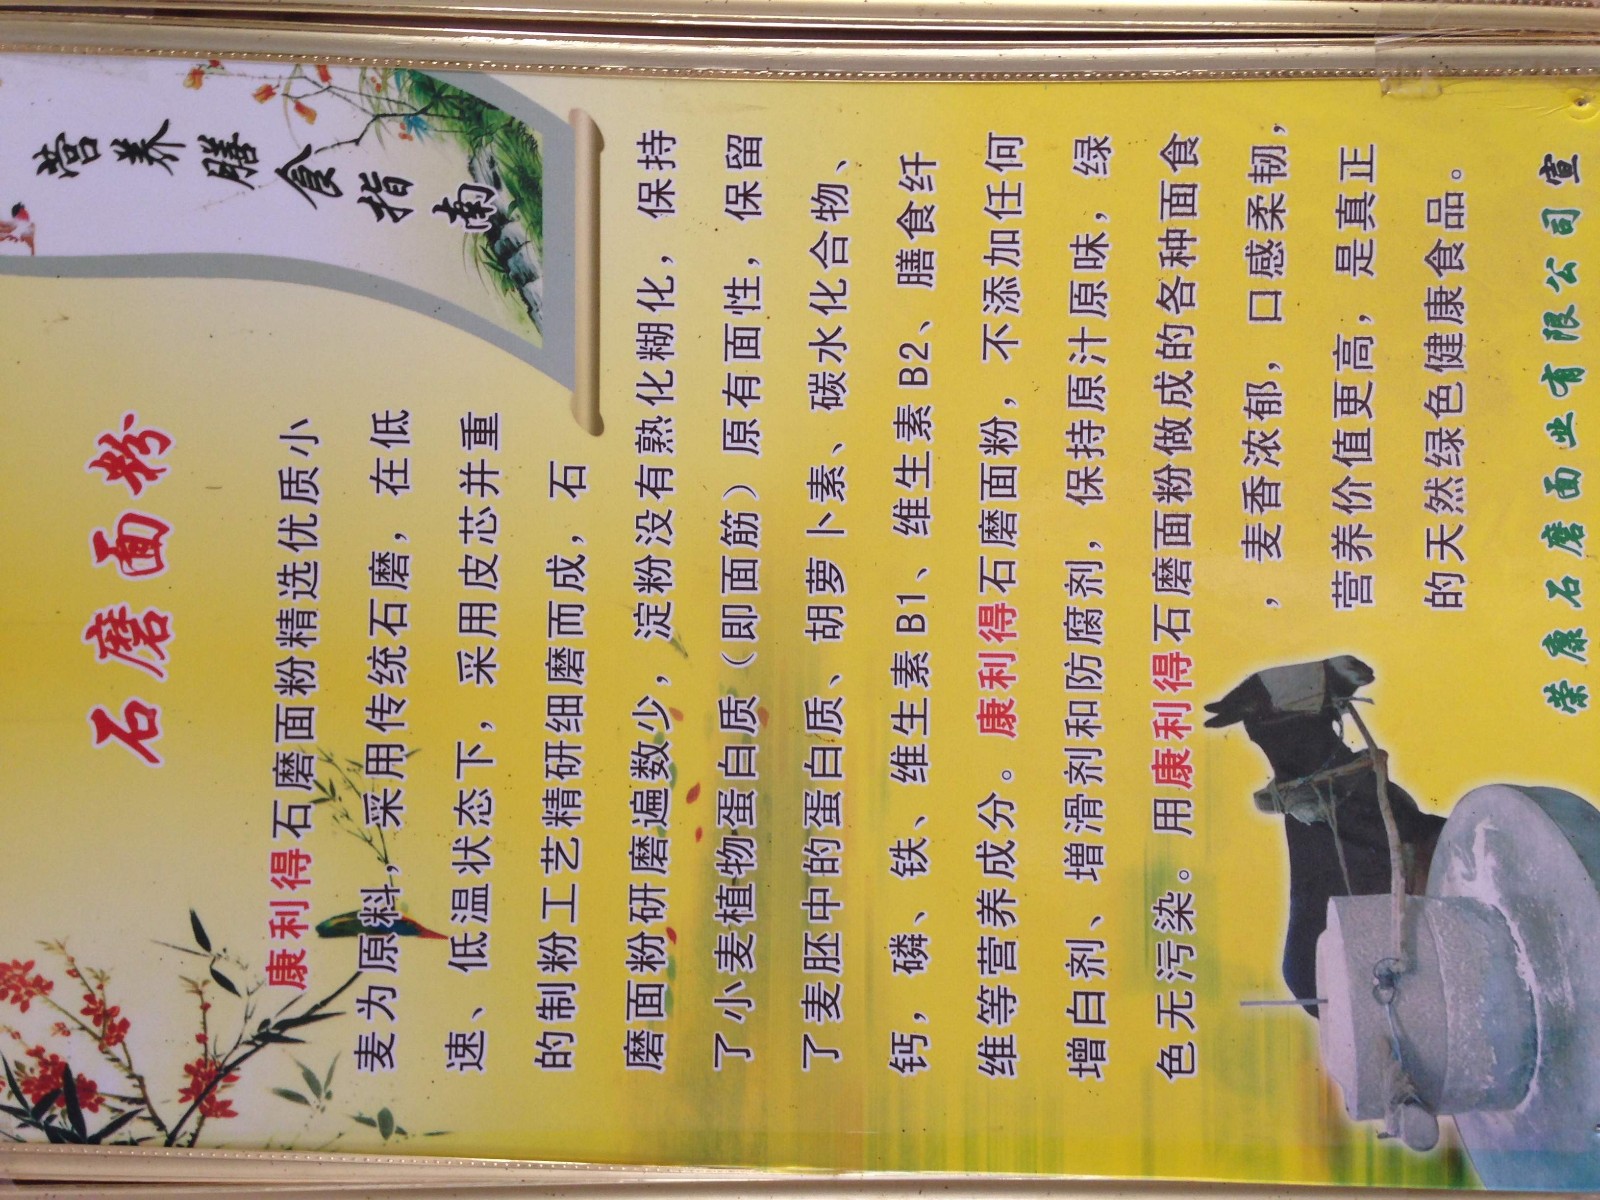 营养膳食指南
石磨面粉
康利得石磨面粉精选优质小
麦为原料，采用传统石磨，在低
速、低温状态下，采用皮芯并重
的制粉工艺精研细磨而成，石
磨面粉研磨遍数少，淀粉没有熟化糊化，保持
了小麦植物蛋白质（即面筋）原有面性，保留
了麦胚中的蛋白质、胡萝卜素、碳水化合物、
钙，磷、铁、维生素B1、维生素B2、膳食纤
维等营养成分。康利得石磨面粉，不添加任何
增白剂、增滑剂和防腐剂，保持原汁原味，绿
色无污染。用康利得石磨面粉做成的各种面食
，麦香浓郁，口感柔韧，
营养价值更高，是真正
的天然绿色健康食品。
荣康石磨面业有限公司宣